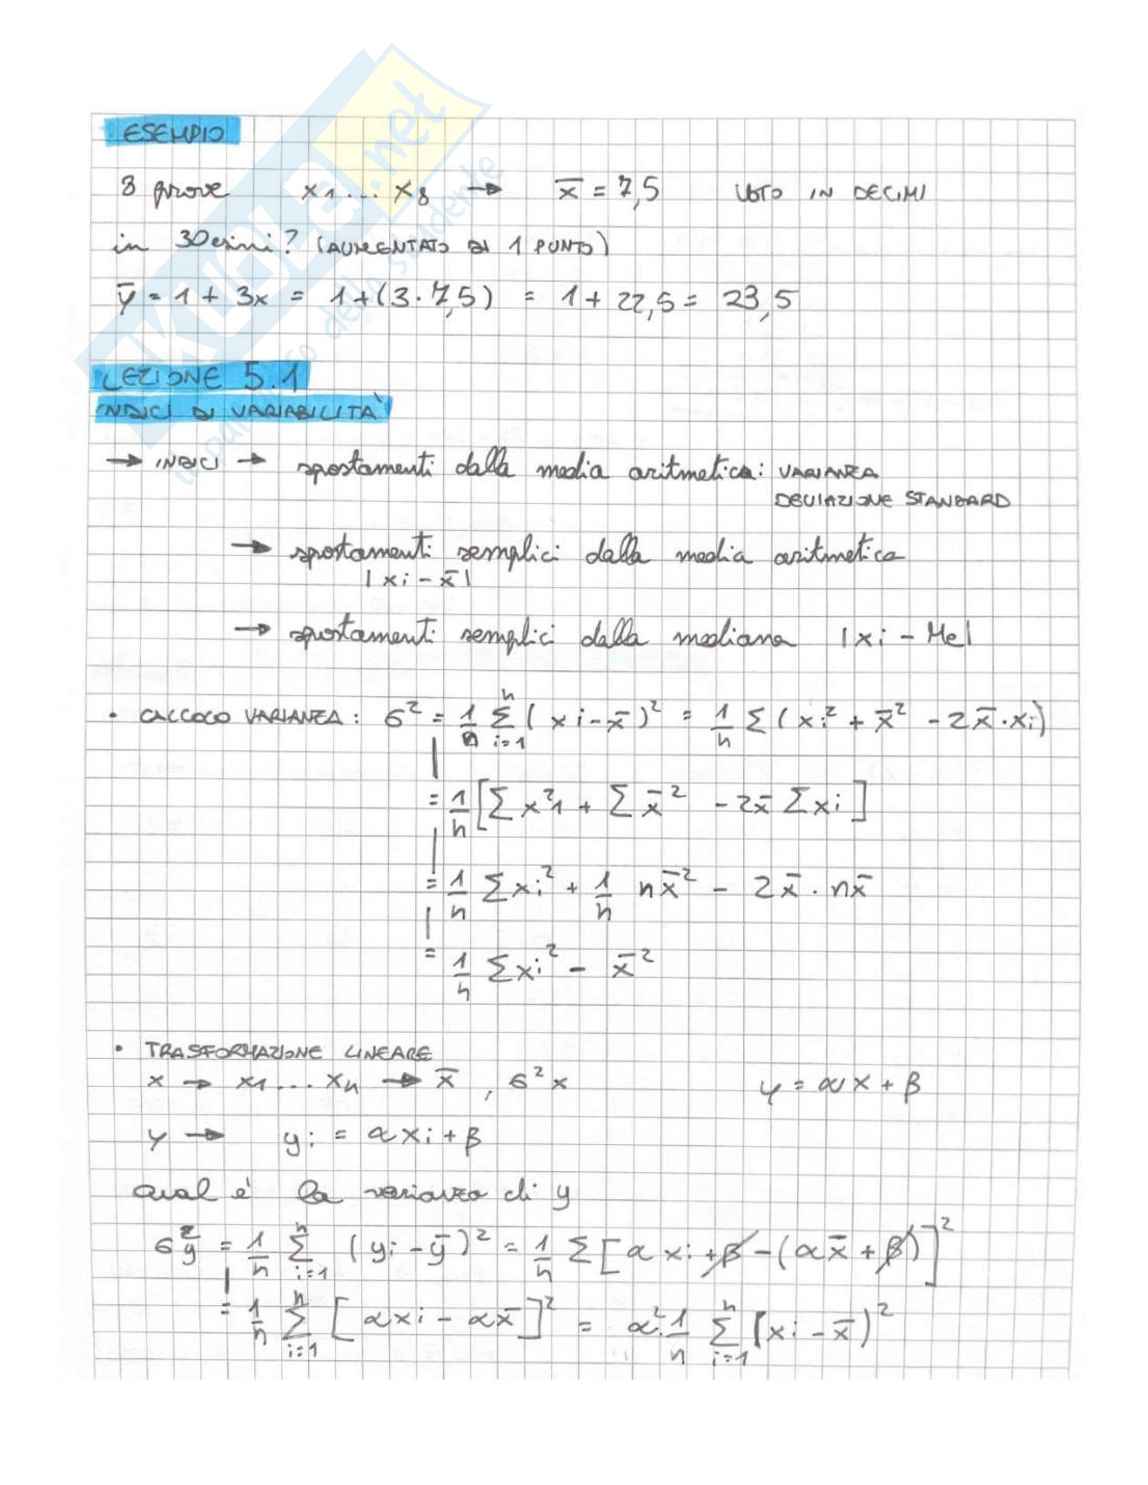 ESEMPIO
8 prove x1 ... x8 → x̄ = 7,5 VOTO IN DECIMI
in 30esimi? (AUMENTATO DI 1 PUNTO)
ȳ = 1 + 3x = 1+(3·7,5) = 1+22,5 = 23,5
LEZIONE 5.1
INDICI DI VARIABILITÀ
→ INDICI → spostamenti dalla media aritmetica: VARIANZA
DEVIAZIONE STANDARD
→ spostamenti semplici dalla media aritmetica
|xi - x̄|
→ spostamenti semplici dalla mediana |xi - Me|
• CALCOLO VARIANZA: 6² = 1/n Σ_{i=1}^{n} (xi - x̄)² = 1/n Σ (xi² + x̄² - 2x̄·xi)
= 1/n [Σ x²1 + Σ x̄² - 2x̄ Σxi]
= 1/n Σxi² + 1/n nx̄² - 2x̄ · nx̄
= 1/n Σxi² - x̄²
• TRASFORMAZIONE LINEARE
x → x1 ... xn → x̄, 6²x y = αx + β
y → yi = αxi + β
qual è la varianza di y
6²y = 1/n Σ_{i=1}^{n} (yi - ȳ)² = 1/n Σ [αxi + β - (αx̄ + β)]²
= 1/n Σ_{i=1}^{n} [αxi - αx̄]² = α²·1/n Σ_{i=1}^{n} [xi - x̄)²